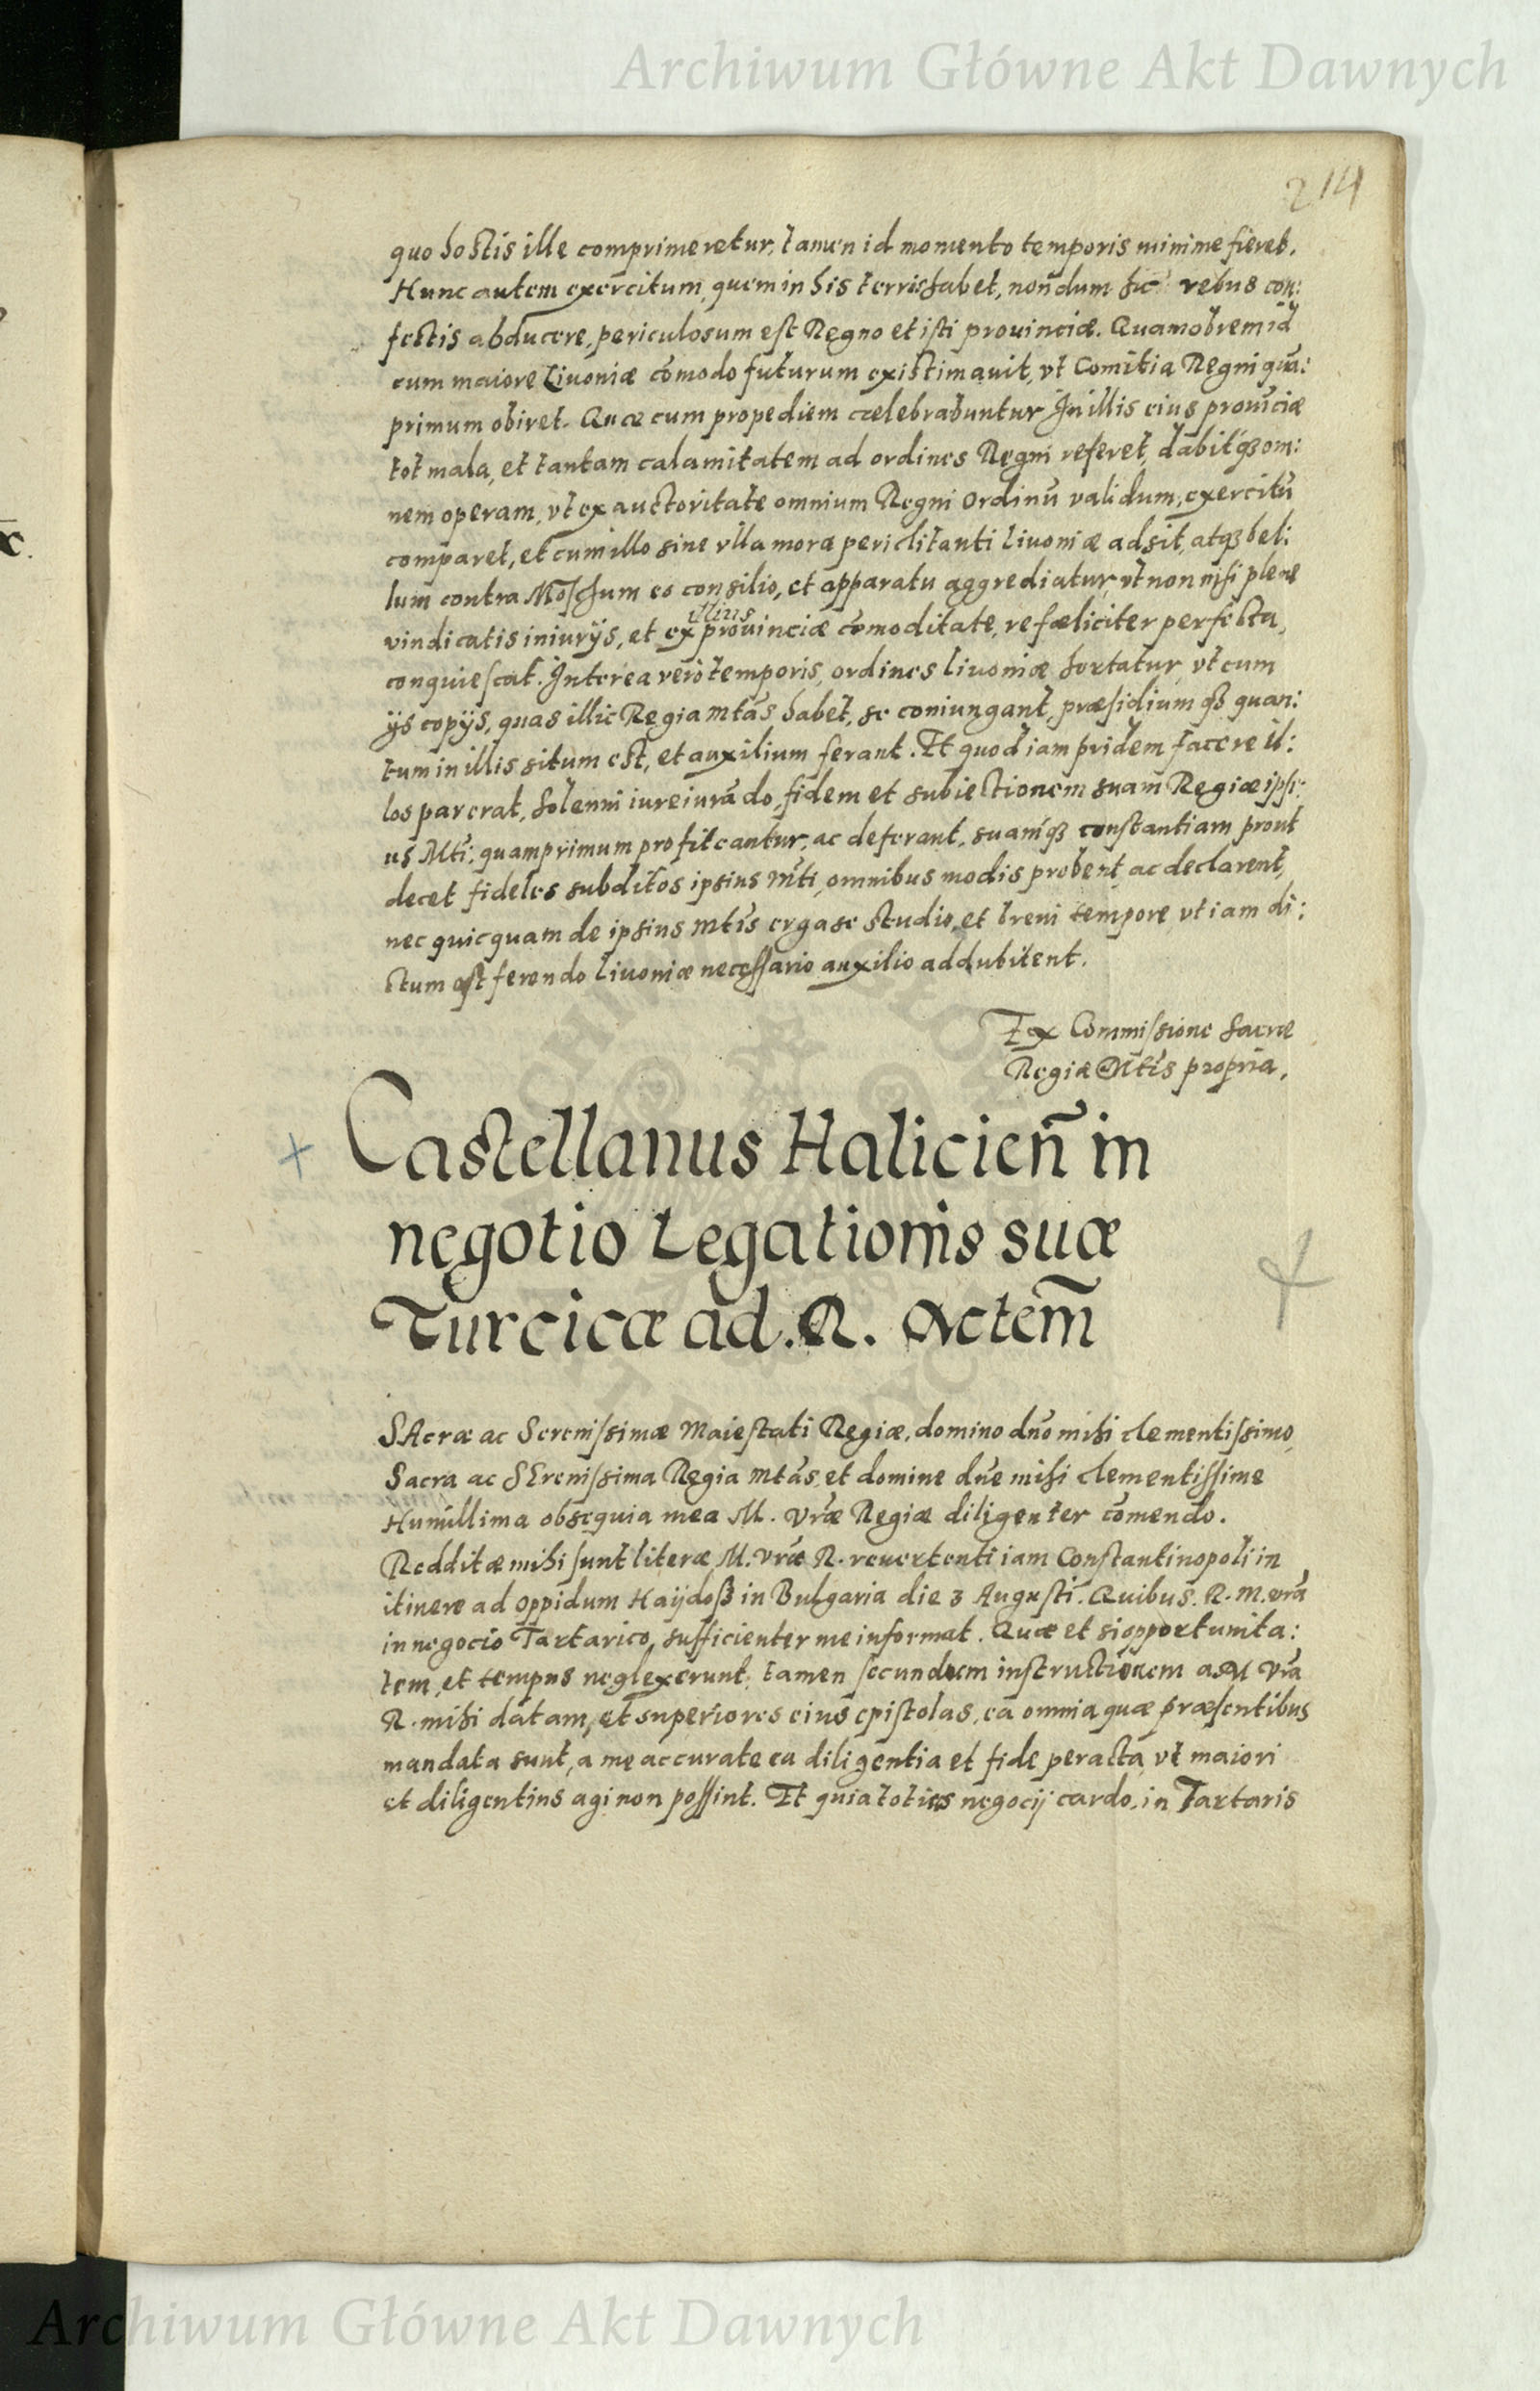 Archiwum Główne Akt Dawnych
214
quo hostis ille comprimeretur, tamen id momento temporis minime fieret.
Hunc autem exercitum, quem in his terris habet, nondum hic rebus con:
fectis abducere, periculosum est Regno et isti prouinciæ. Quamobrem id
cum maiore Liuoniæ com̄odo futurum existimauit, vt Comitia Regni quā:
primum obiret. Quæ cum propediem cælebrabuntur In illis eius prouīciæ
tot mala, et tantam calamitatem ad ordines Regni referet, dabitqȝ om:
nem operam, vt ex auctoritate omnium Regni Ordinū validum, exercitū
comparet, et cum illo sine vlla mora periclitanti Liuoniæ adsit, atqȝ bel:
lum contra Moschum eo consilio, et apparatu aggrediatur, vt non nisi plene
illius
vindicatis iniurijs, et ex prouinciæ com̄oditate, re fæliciter perfecta,
conquiescat. Interea vero temporis, ordines Liuoniæ hortatur, vt cum
ijs copijs, quas illic Regia Mtās habet, se coniungant, præsidium qȝ quan:
tum in illis situm est, et auxilium ferant. Et quod iam pridem facere il:
los par erat, solenni iureiurādo, fidem et subiectionem suam Regiæ ipsi:
us Mti: quamprimum profiteantur, ac deferant, suamqȝ constantiam prout
decet fideles subditos ipsius Mti, omnibus modis probent, ac declarent,
nec quicquam de ipsius Mtis erga se studio, et breui tempore vt iam di:
ctum est ferendo Liuoniæ necessario auxilio addubitent.
Ex Commissione Sacræ
Regiæ Mtis propria.
Castellanus Halicień in
negotio Legationis suæ
Turcicæ ad. R. Mctem̄
SAcræ ac Serenissimæ Maiestati Regiæ, domino dn̄o mihi clementissimo,
Sacra ac SErenissima Regia Mtās, et domine dn̄e mihi clementissime
Humillima obsequia mea M. Vrǣ Regiæ diligenter com̄endo.
Redditæ mihi sunt literæ M. vrǣ R. reuertenti iam Constantinopoli in
itinere ad oppidum Haijdosß in Bulgaria die 3 Augusti. Quibus. R. M. vrā
in negocio Tartarico, sufficienter me informat. Quæ et si opportunita:
tem, et tempus neglexerunt, tamen secundum instructionem a M Vrā
R. mihi datam, et superiores eius epistolas, ea omnia quæ præsentibus
mandata sunt, a me accurate ea diligentia et fide peracta, vt maiori
et diligentius agi non possint. Et quia toties negocij cardo, in Tartaris
Archiwum Główne Akt Dawnych